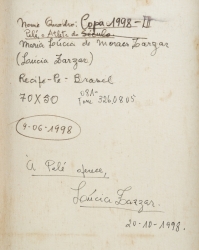 Nome Quadro: Copa 1998-III
Pelé o Atleta do Século
Maria Lúcia de Moraes Zarzar
(Laucia Zarzar)
Recife-Pe- Brasil
70X50 081-
Fone 326.08.05
9-06-1998
A Pelé
Laúcia Zarzar.
20-10-1998.